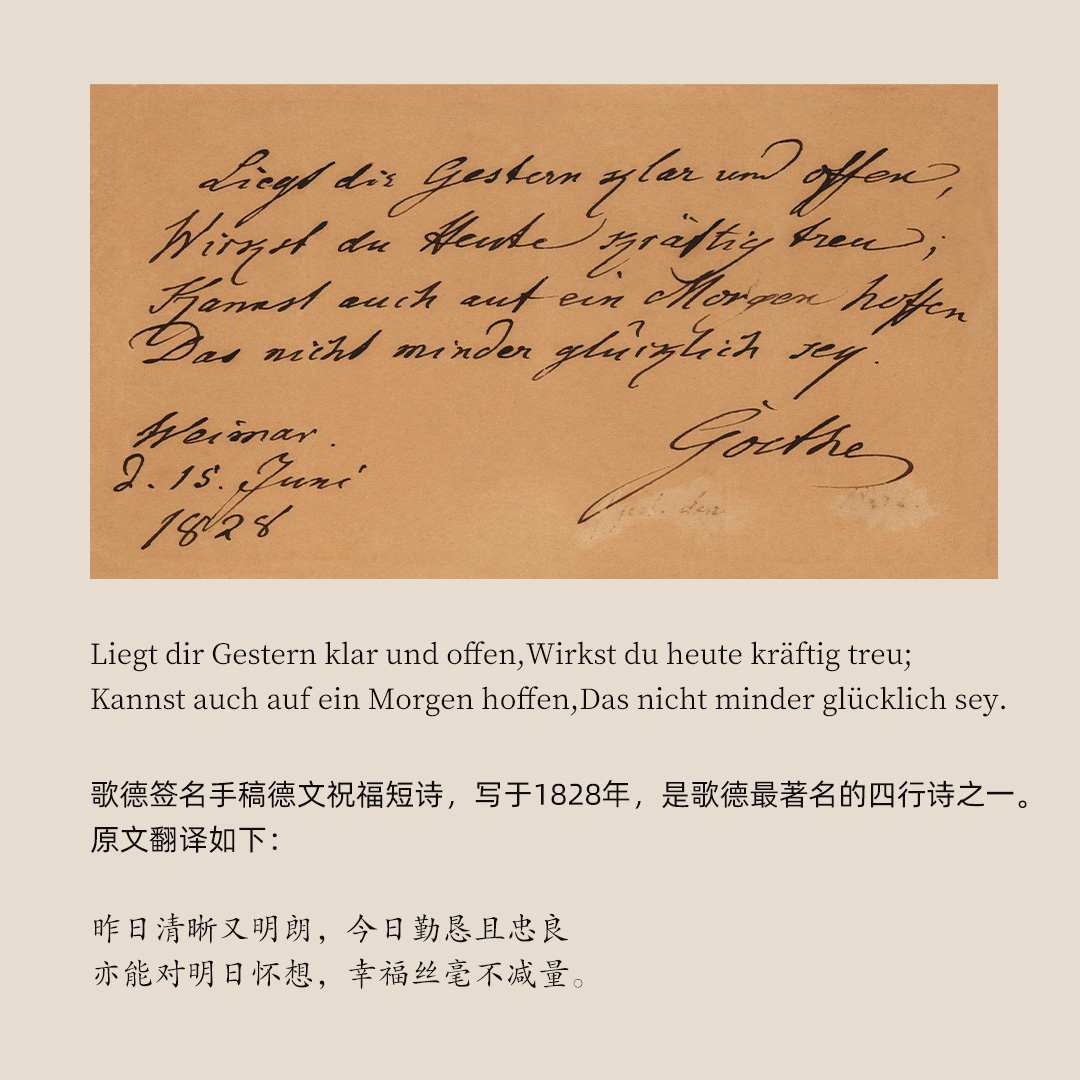 Liegt dir Gestern klar und offen,
Wirkst du Heute kräftig treu;
Kannst auch auf ein Morgen hoffen
Das nicht minder glücklich sey.
Weimar.
d. 15. Juni
1828
Goethe
den
Liegt dir Gestern klar und offen,Wirkst du heute kräftig treu;
Kannst auch auf ein Morgen hoffen,Das nicht minder glücklich sey.
歌德签名手稿德文祝福短诗，写于1828年，是歌德最著名的四行诗之一。
原文翻译如下：
昨日清晰又明朗，今日勤恳且忠良
亦能对明日怀想，幸福丝毫不减量。